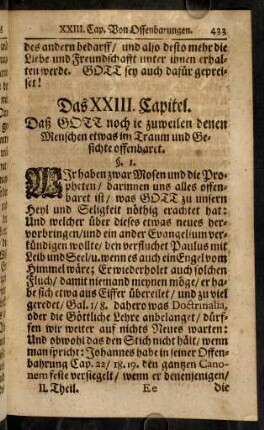 XXIII. Cap. Von Offenbarungen. 433
des andern bedarff / und also desto mehr die
Liebe und Freundschafft unter ihnen erhal-
ten werde. GOTT sey auch dafür geprei-
set!
Das XXIII. Capitel.
Daß GOTT noch ie zuweilen denen
Menschen etwas im Traum und Ge-
sichte offenbaret.
§. 1.
WIr haben zwar Mosen und die Pro-
pheten / darinnen uns alles offen-
baret ist / was GOTT zu unsern
Heyl und Seligkeit nöthig erachtet hat:
Und welcher über dieses etwas neues her-
vorbringen / und ein ander Evangelium ver-
kündigen wollte / den verfluchet Paulus mit
Leib und Seel / u. wenn es auch ein Engel vom
Himmel wäre; Er wiederholet auch solchen
Fluch / damit niemand meynen möge / er ha-
be sich etwa aus Eiffer übereilet / und zu viel
geredet / Gal. 1 / 8. dahero was Doctrinalia,
oder die Göttliche Lehre anbelanget / dürf-
fen wir weiter auf nichts Neues warten:
Und obwohl das den Stich nicht hält / wenn
man spricht: Johannes habe in seiner Offen-
bahrung Cap. 22 / 18. 19. den gantzen Cano-
nem feste versiegelt / wenn er denenjenigen /
II. Theil. Ee die